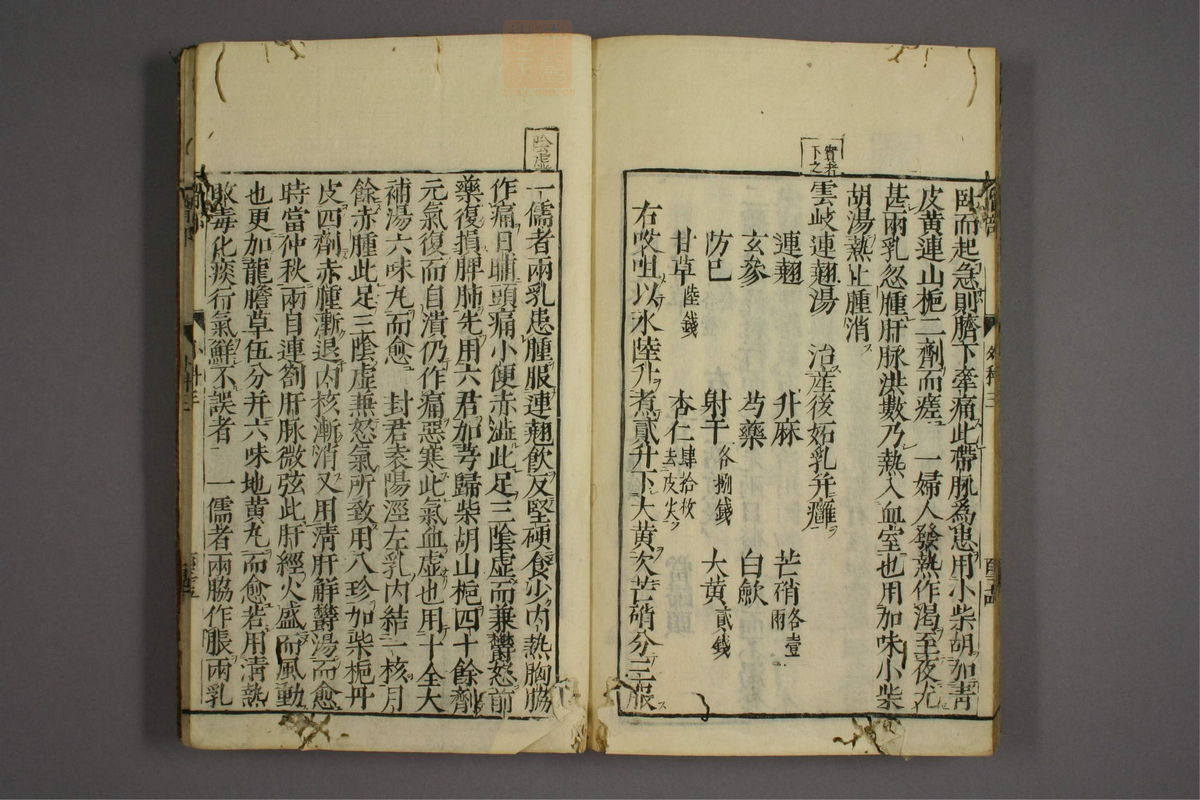 臥而起急則臍下牽痛此帶脉爲患用小柴胡加青
皮黃連山梔二劑而瘥 一婦人發熱作渴至夜尤
甚兩乳忽腫肝脉洪數乃熱入血室也用加味小柴
胡湯熱止腫消
實者下之
雲岐連翹湯 治産後妬乳并癰
連翹 升麻 芒硝各壹兩
玄參 芍藥 白歛
防巳 射干各捌錢 大黄貳錢
甘草陸錢 杏仁肆拾枚去皮尖
右㕮咀以水陸升煮貳升下大黄次芒硝分三服
陰虛
一儒者兩乳患腫服連翹飲反堅硬食少内熱胸脇
作痛日晡頭痛小便赤澁此足三陰虛而兼鬱怒前
藥復損脾肺先用六君加芎歸柴胡山梔四十餘劑
元氣復而自潰仍作痛惡寒此氣血虛也用十全大
補湯六味丸而愈 封君袁陽涇左乳内結一核月
餘赤腫此足三陰虛兼怒氣所致用八珍加柴梔丹
皮四劑赤腫漸退内核漸消又用清肝解鬱湯而愈
時當仲秋兩目連劄肝脉微弦此肝經火盛而風動
也更加龍膽草伍分并六味地黄丸而愈若用清熱
敗毒化痰行氣鮮不誤者 一儒者兩脇作脹兩乳